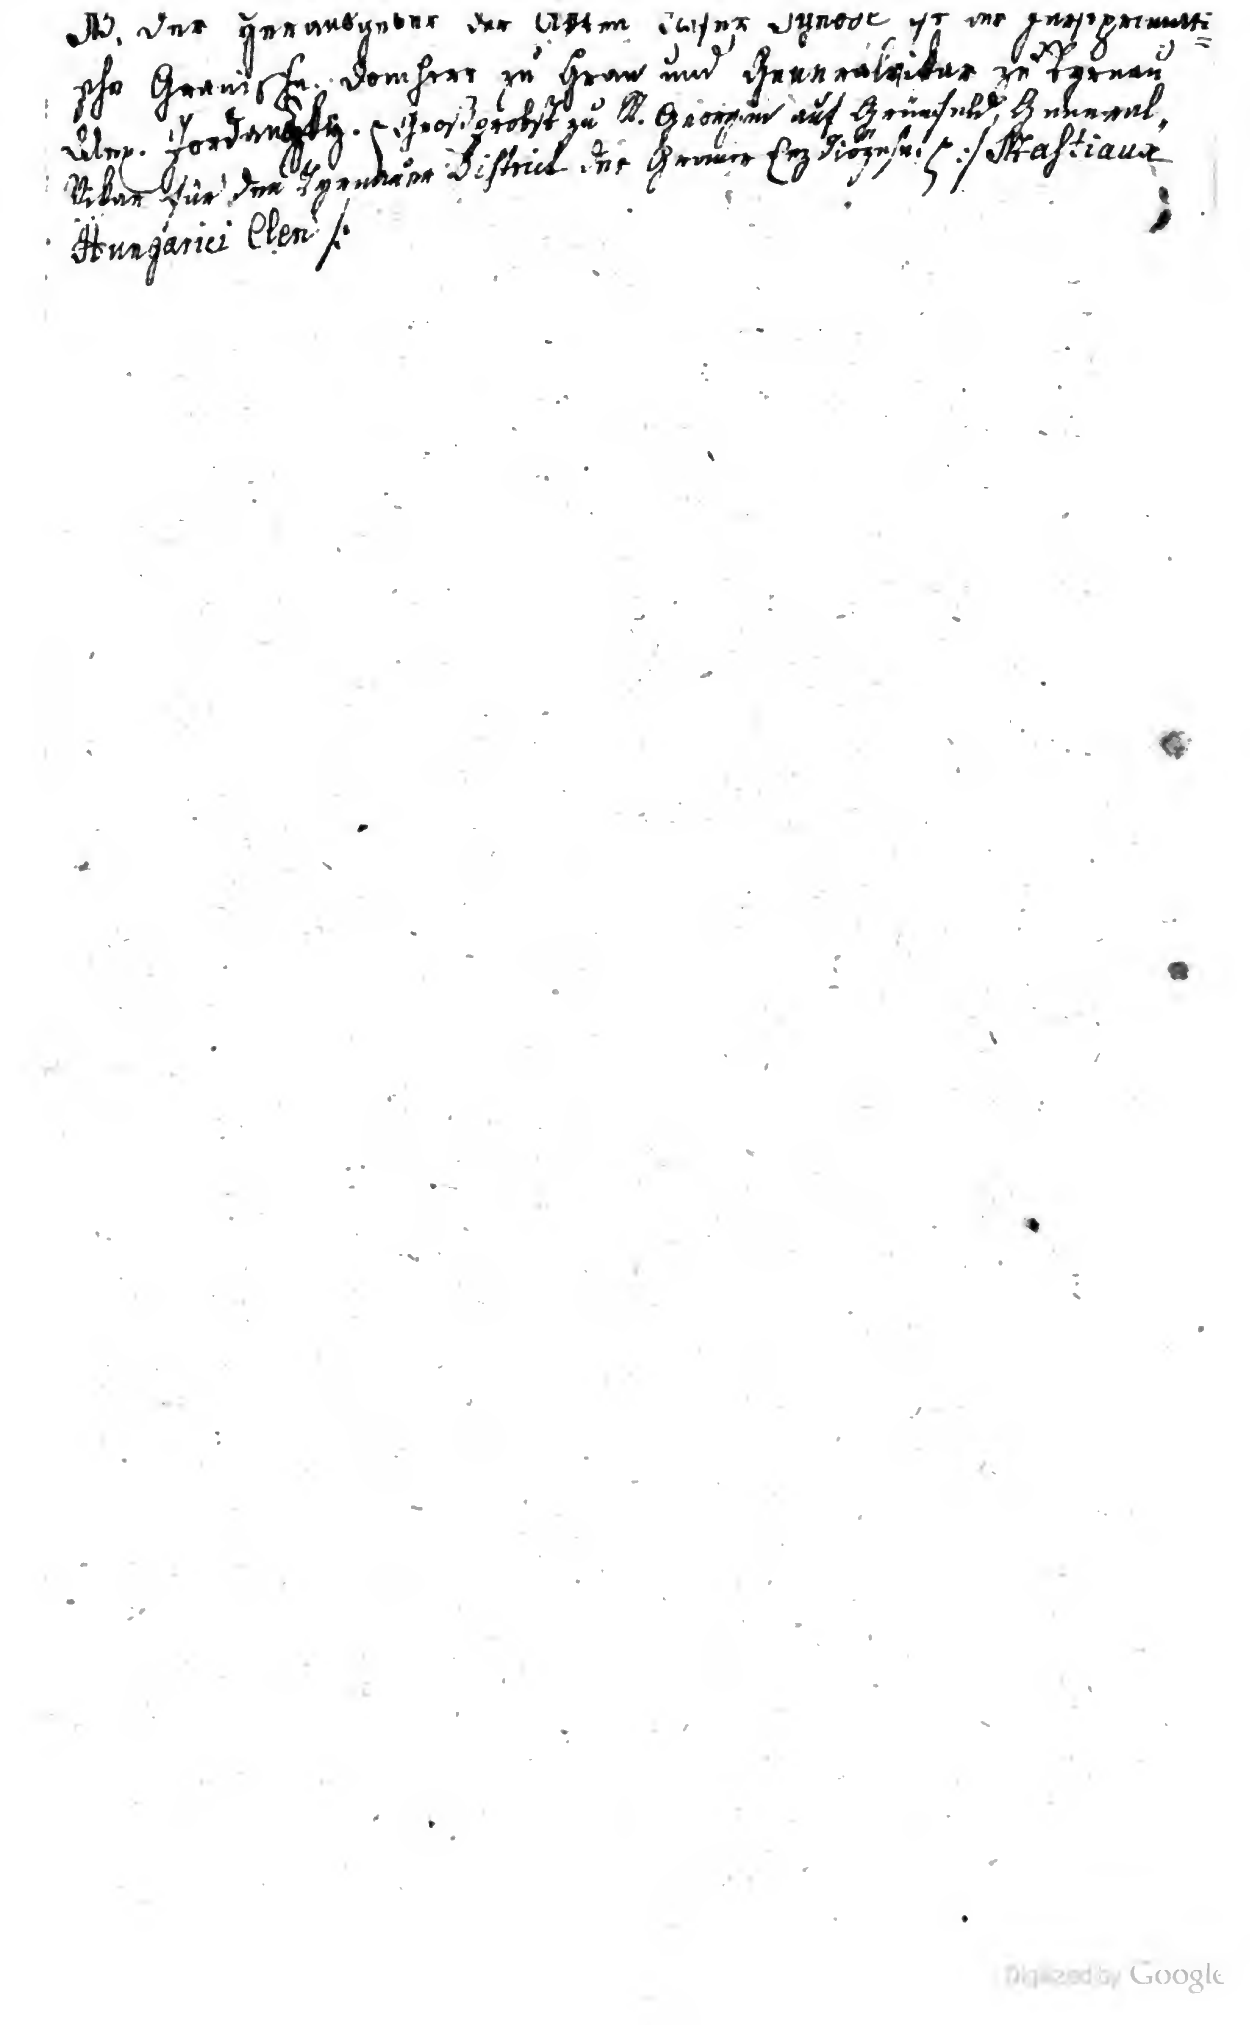 NB. Der Herausgeber der Akten dieser Synode ist der fürstprimati=
sche Granische Domherr zu Gran und Generalvikar zu Tyrnau
Alex. Jordanszky. Großprobst zu St. Georgen auf Grünfeld, General-
Vikar für den Tyrnauer District der Graner Erzdiözese. :/ Mastiaux
Hungarici Cleri /:
Digitized by Google